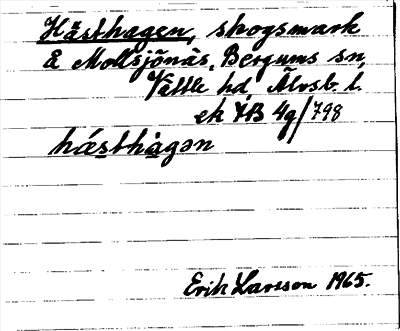 Hästhagen, skogsmark
å Mollsjönäs, Bergums sn,
Vättle hd, Älvsb. l.
ek 7B 4g/798
hästhàgən
Erik Larsson 1965.